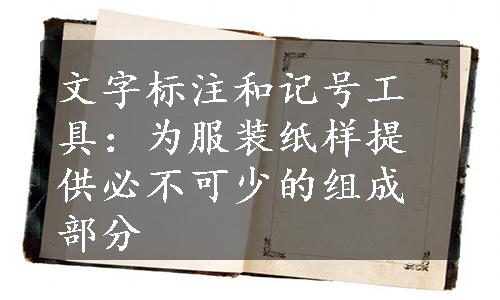 文字标注和记号工
具：为服装纸样提
供必不可少的组成
部分